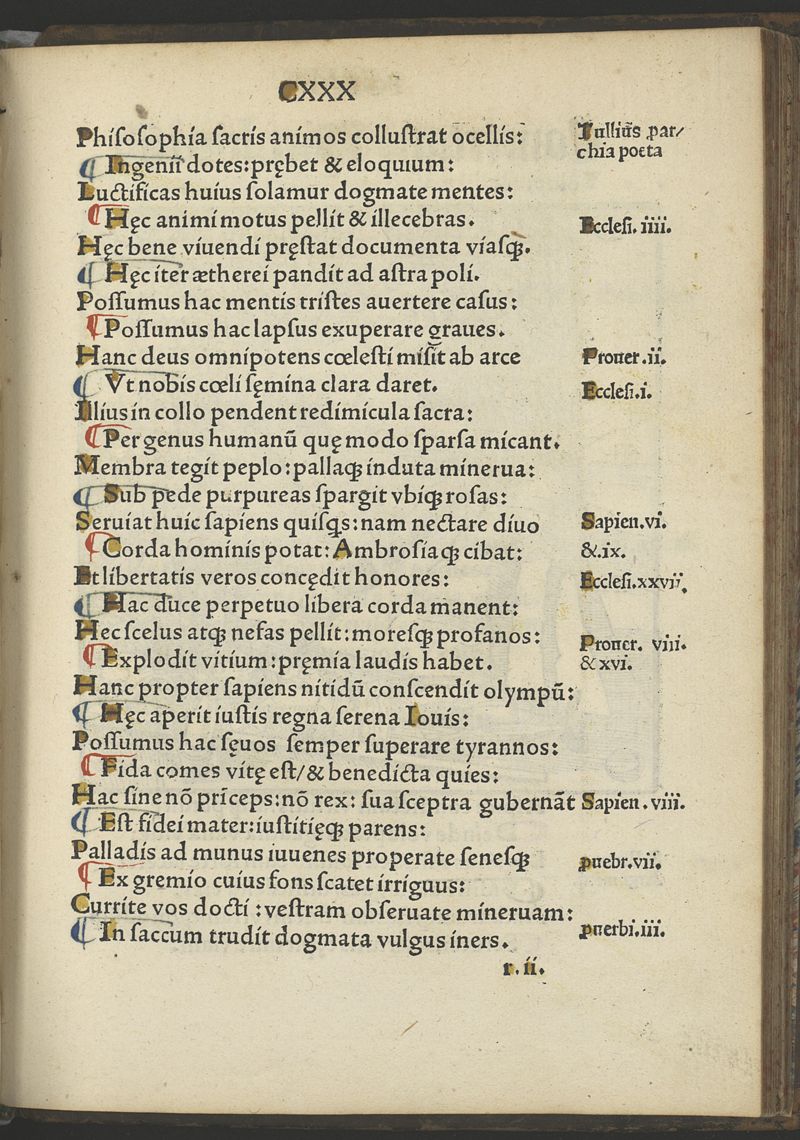 CXXX
Philosophia sacris animos collustrat ocellis:
¶ Ingenii dotes: prębet & eloquium:
Luctificas huius solamur dogmate mentes:
¶ Hęc animi motus pellit & illecebras.
Hęc bene viuendi pręstat documenta viasqꝫ.
¶ Hęc iter ætherei pandit ad astra poli.
Possumus hac mentis tristes auertere casus:
¶ Possumus hac lapsus exuperare graues.
Hanc deus omnipotens cœlesti misit ab arce
¶ Vt nobis cœli sęmina clara daret.
Illius in collo pendent redimicula sacra:
¶ Per genus humanū quę modo sparsa micant.
Membra tegit peplo: pallaqꝫ induta minerua:
¶ Sub pede purpureas spargit vbiqꝫ rosas:
Seruiat huic sapiens quisqs: nam nectare diuo
¶ Corda hominis potat: Ambrosiaqꝫ cibat:
Et libertatis veros concędit honores:
¶ Hac duce perpetuo libera corda manent:
Hec scelus atqꝫ nefas pellit: moresqꝫ profanos:
¶ Explodit vitium: pręmia laudis habet.
Hanc propter sapiens nitidū conscendit olympū:
¶ Hęc aperit iustis regna serena Iouis:
Possumus hac sęuos semper superare tyrannos:
¶ Fida comes vitę est/& benedicta quies:
Hac sine nō prīceps: nō rex: sua sceptra gubernāt
¶ Est fidei mater: iustitięqꝫ parens:
Palladis ad munus iuuenes properate senesqꝫ
¶ Ex gremio cuius fons scatet irriguus:
Currite vos docti: vestram obseruate mineruam:
¶ In saccum trudit dogmata vulgus iners.
r.ii.
Tullius par/
chia poeta
Ecclesi. iiii.
Prouer.ii.
Ecclesi.i.
Sapien.vi.
&.ix.
Ecclesi.xxvii.
Prouer. viii.
& xvi.
Sapien. viii.
puebr.vii.
puerbi.iii.